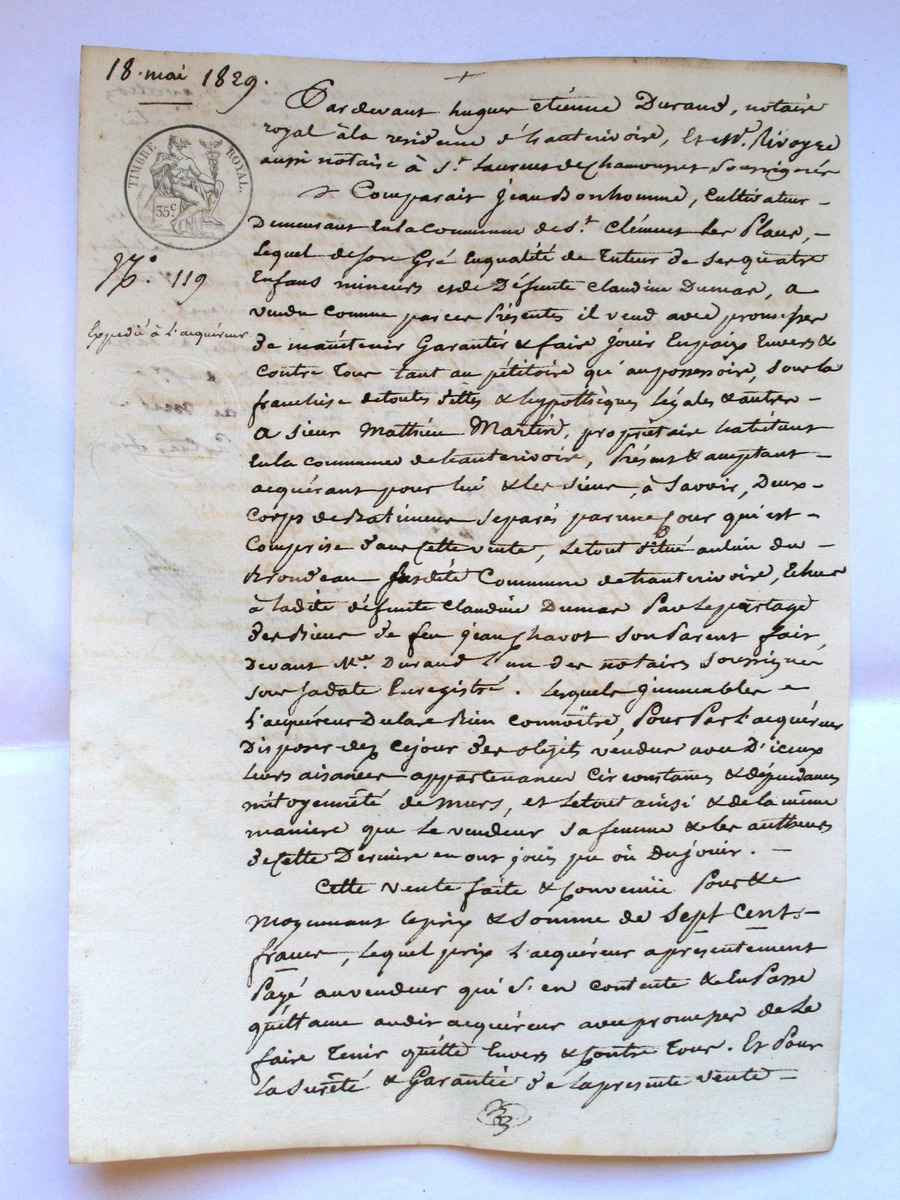 18. mai 1829.
TIMBRE ROYAL.
35c
No. 119
Expédié à l'acquéreur
Pardevant hugues etienne Durand, notaire
royal à la residence d'hauterivoire, Et Me. Rivoyre
aussi notaire à St. Laurent de Chamousset Soussignés
Comparait Jean Bonhomme, Cultivateur
Demeurant En la Commune de St. Clément les Places,
Lequel de son Gré En qualité de Tuteur de ses quatre
Enfans mineurs et de Défunte Claudine Dumas, a
vendu comme par ces Présentes il vend avec promesse
de maintenir Garantir & faire jouir En paix Envers &
Contre Tous tant au pétitoire qu'au possessoire, sous la
franchise de toutes dettes & hypothèques légales & autres
a sieur Mathieu Martin, propriétaire habitant
En la commune de hauterivoire, Présent & acceptant
acquérant pour lui & les siens, à savoir, Deux
Corps de Batimens separés par une Cour qui est
Comprise dans Cette vente, le tout situé au lieu du
Commune de hauterivoire, Echus
à ladite défunte Claudine Dumas Par le partage
des Biens de feu jean Chavot son Parent fait
Devant Me. Durand l'un des notaires soussignés
sous sa date Enregistré. Lesquels jmmeubles
L'acquéreur Declare Bien connoître, Pour Par L'acquéreur
Disposer dez cejour des objets vendus avec D'iceux
leurs aisances appartenances circonstances & dépendances
mitoyenneté de murs, et le tout ainsi & de la même
maniere que le vendeur sa femme & les autheurs
de Cette Derniere en ont joui pu ou Du jouir.
Cette vente faite & Convenüe Pour &
moyennant le prix & Somme de Sept Cents
francs, lequel prix L'acquéreur a présentement
Payé au vendeur qui s'en contente & En Passe
quittance audit acquéreur avec promesse de le
faire Tenir quitte Envers & Contre Tous. Et Pour
la sureté & Garantie de la presente vente